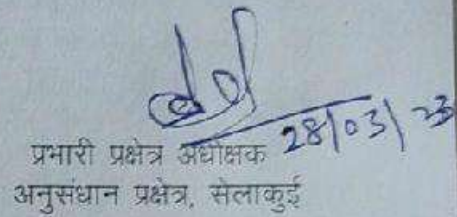 28/03/23
प्रभारी प्रक्षेत्र अधीक्षक
अनुसंधान प्रक्षेत्र, सेलाकुई